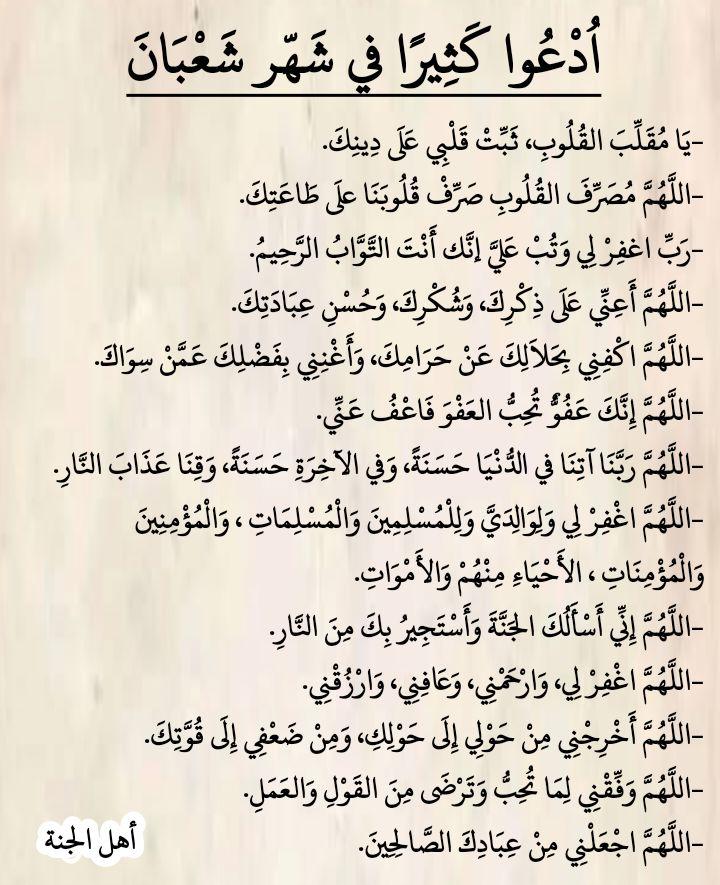 اُدْعُوا كَثِيرًا في شَهّر شَعْبَانَ
-يَا مُقَلِّبَ القُلُوبِ، ثَبِّتْ قَلْبِي عَلَى دِينِكَ.
-اللَّهُمَّ مُصَرِّفَ القُلُوبِ صَرِّفْ قُلُوبَنَا علَى طَاعَتِكَ.
-رَبِّ اغفِرْ لِي وَتُبْ عَلَيَّ إنَّك أَنْتَ التَّوَّابُ الرَّحِيمُ.
-اللَّهُمَّ أَعِنِّي عَلَى ذِكْرِكَ، وَشُكْرِكَ، وَحُسْنِ عِبَادَتِكَ.
-اللَّهُمَّ اكْفِنِي بِحَلاَلِكَ عَنْ حَرَامِكَ، وَأَغْنِنِي بِفَضْلِكَ عَمَّنْ سِوَاكَ.
-اللَّهُمَّ إِنَّكَ عَفُوٌّ تُحِبُّ العَفْوَ فَاعْفُ عَنِّي.
-اللَّهُمَّ رَبَّنَا آتِنَا في الدُّنْيَا حَسَنَةً، وَفي الآخِرَةِ حَسَنَةً، وَقِنَا عَذَابَ النَّارِ.
-اللَّهُمَّ اغْفِرْ لِي وَلِوَالِدَيَّ وَلِلْمُسْلِمِينَ وَالْمُسْلِمَاتِ ، وَالْمُؤْمِنِينَ
وَالْمُؤْمِنَاتِ ، الأَحْيَاءِ مِنْهُمْ وَالأَمْوَاتِ.
-اللَّهُمَّ إِنِّي أَسْأَلُكَ الجَنَّةَ وَأَسْتَجِيرُ بِكَ مِنَ النَّارِ.
-اللَّهُمَّ اغْفِرْ لِي، وَارْحَمْنِي، وَعَافِنِي، وَارْزُقْنِي.
-اللَّهُمَّ أَخْرِجْنِي مِنْ حَوْلِي إِلَى حَوْلِكِ، وَمِنْ ضَعْفِي إِلَى قُوَّتِكَ.
-اللَّهُمَّ وَفِّقْنِي لِمَا تُحِبُّ وَتَرْضَى مِنَ القَوْلِ وَالعَمَلِ.
-اللَّهُمَّ اجْعَلْنِي مِنْ عِبَادِكَ الصَّالِحِينَ.
أهل الجنة